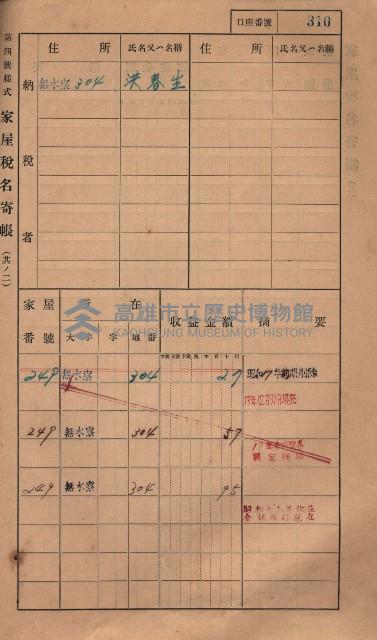 口座番號 310
第四號樣式 家屋稅名寄帳 (其ノ二)
住所 氏名又ハ名稱 住所 氏名又ハ名稱
納稅者
無水寮 304 洪春生
家屋番號 所在 大字 字 地番 收益金額 摘要
高雄市立歷史博物館
KAOHSIUNG MUSEUM OF HISTORY
249 無水寮 304 27
249 無水寮 304 57
249 無水寮 304 95